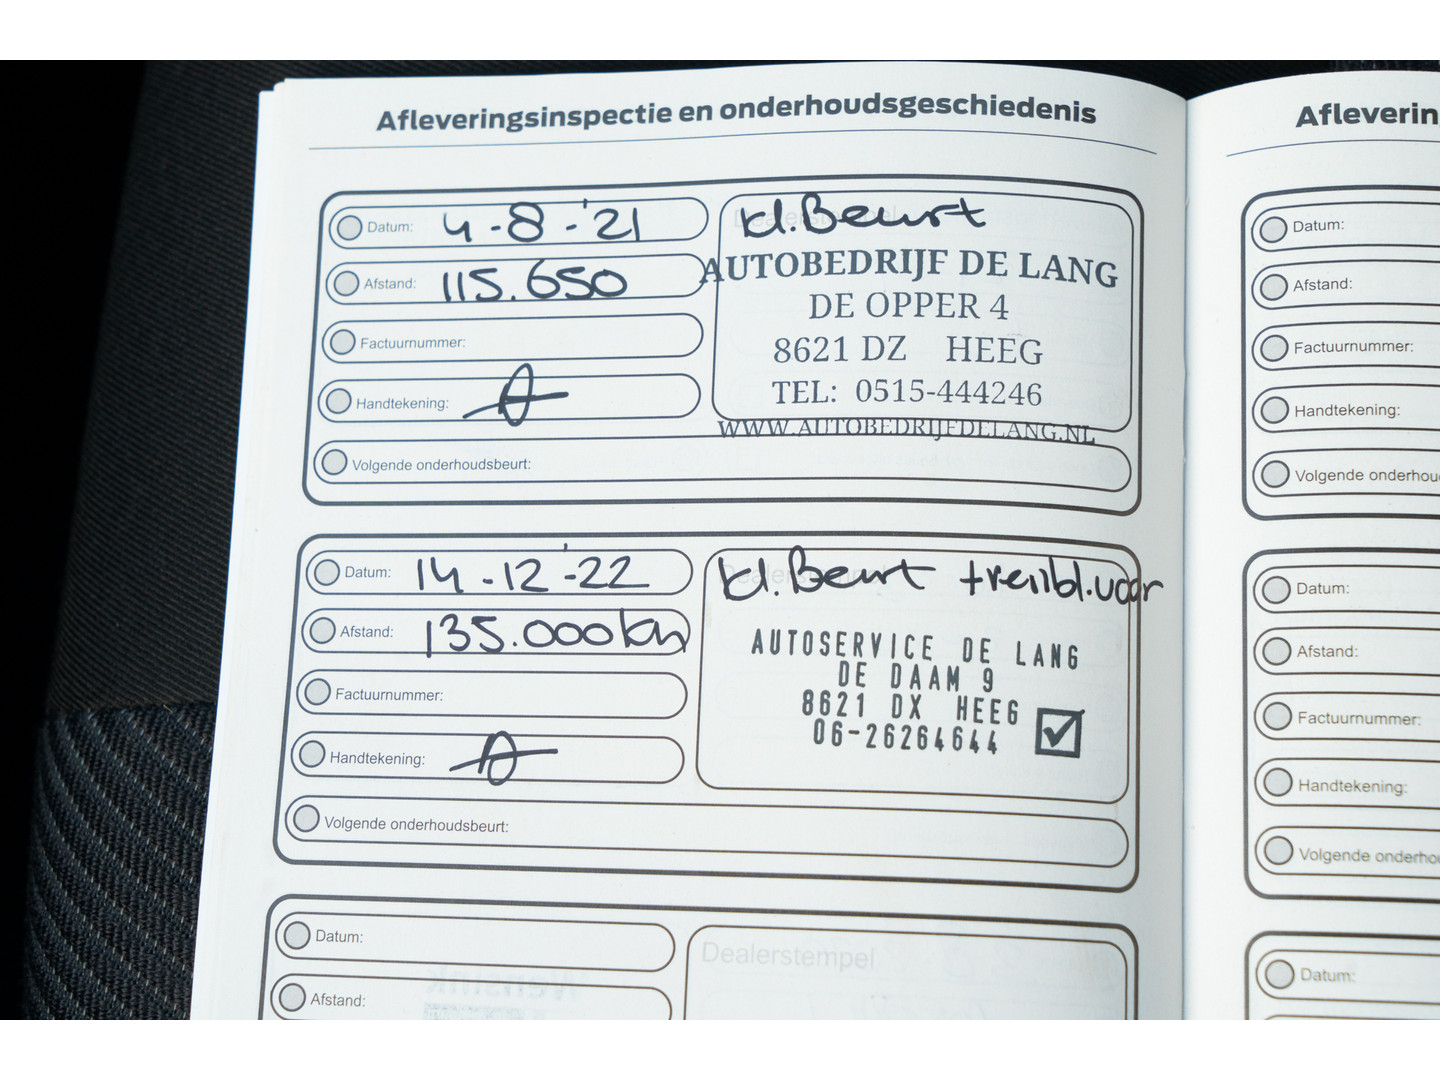 Afleveringsinspectie en onderhoudsgeschiedenis
Datum: 4-8-'21
Afstand: 115.650
Factuurnummer:
Handtekening:
Volgende onderhoudsbeurt:
Dealerstempel
kl. Beurt
AUTOBEDRIJF DE LANG
DE OPPER 4
8621 DZ HEEG
TEL: 0515-444246
WWW.AUTOBEDRIJFDELANG.NL
Datum: 14-12-'22
Afstand: 135.000km
Factuurnummer:
Handtekening:
Volgende onderhoudsbeurt:
Dealerstempel
kl. Beurt
AUTOSERVICE DE LANG
DE DAAM 9
8621 DX HEEG
06-26264644
Datum:
Afstand:
Dealerstempel
Afleverin
Datum:
Afstand:
Factuurnummer:
Handtekening:
Volgende onderhou
Datum:
Afstand:
Factuurnummer:
Handtekening:
Volgende onderho
Datum: